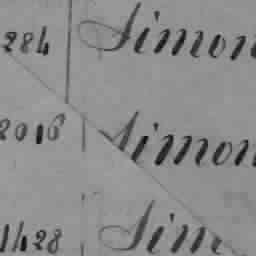 284 Simon
2016 Simon
1428 Sim